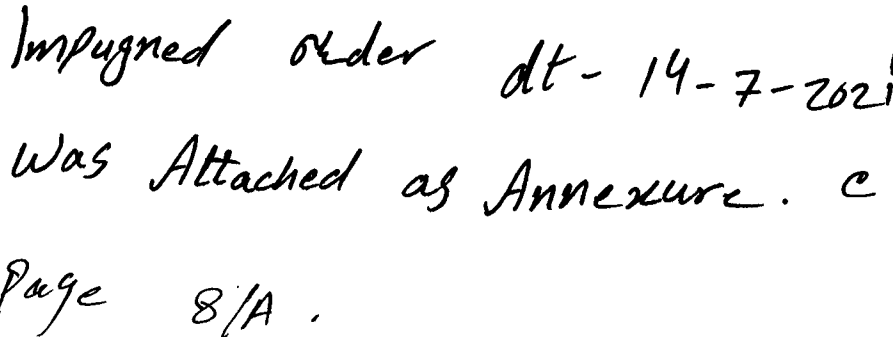 Impugned order dt- 14-7-2021
Was Attached as Annexure. C
Page 8/A .